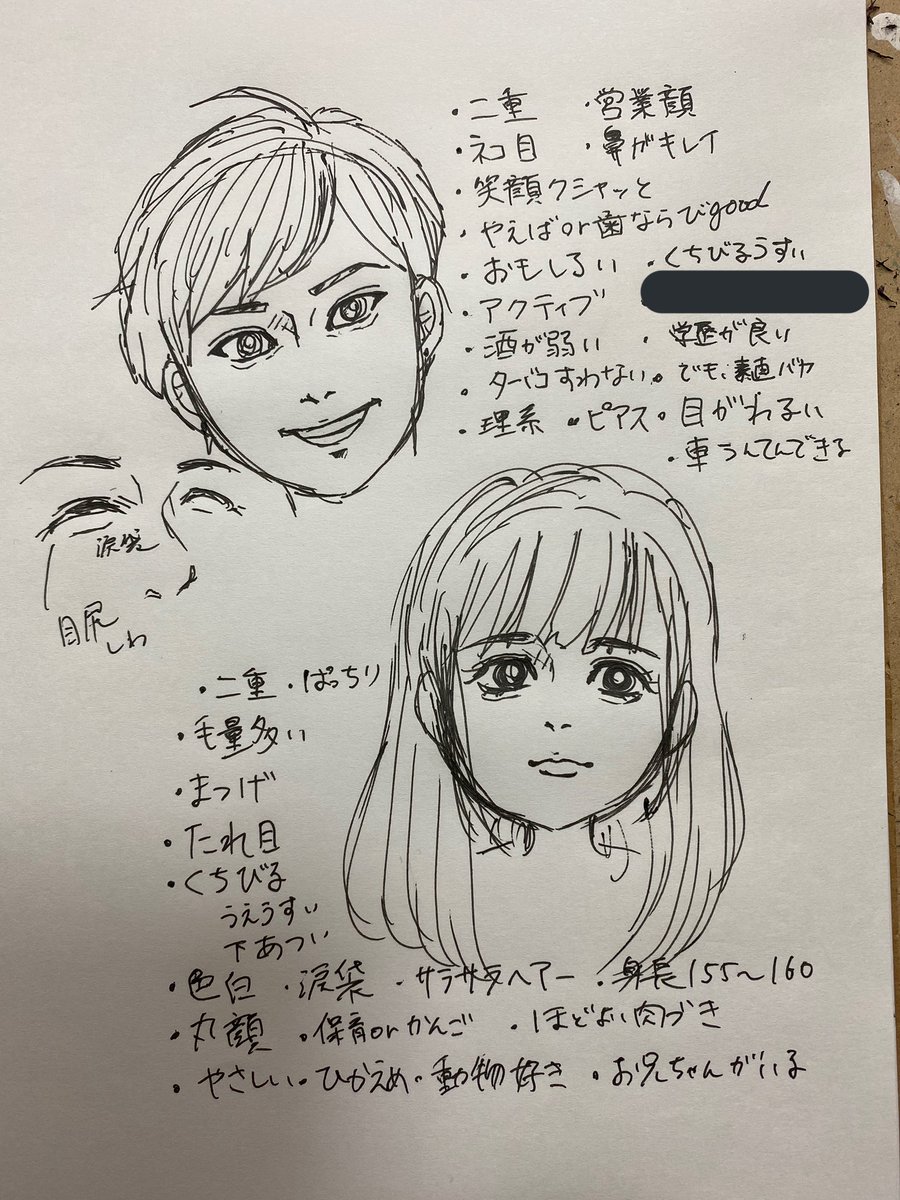 ・二重 ・営業顔
・ネコ目 ・鼻がキレイ
・笑顔クシャッと
・やえばor歯ならびgood
・おもしろい ・くちびるうすい
・アクティブ
・酒が弱い ・学歴が良い
・タバコすわない。でも、素直バカ
・理系 ・ピアス ・目がわるい
・車うんてんできる
涙袋
目尻
しわ
・二重 ・ぱっちり
・毛量多い
・まつげ
・たれ目
・くちびる
うえうすい
下あつい
・色白 ・涙袋 ・サラサラヘアー ・身長155〜160
・丸顔 ・保育orかんご ・ほどよい肉づき
・やさしい ・ひかえめ ・動物好き ・お兄ちゃんがいる